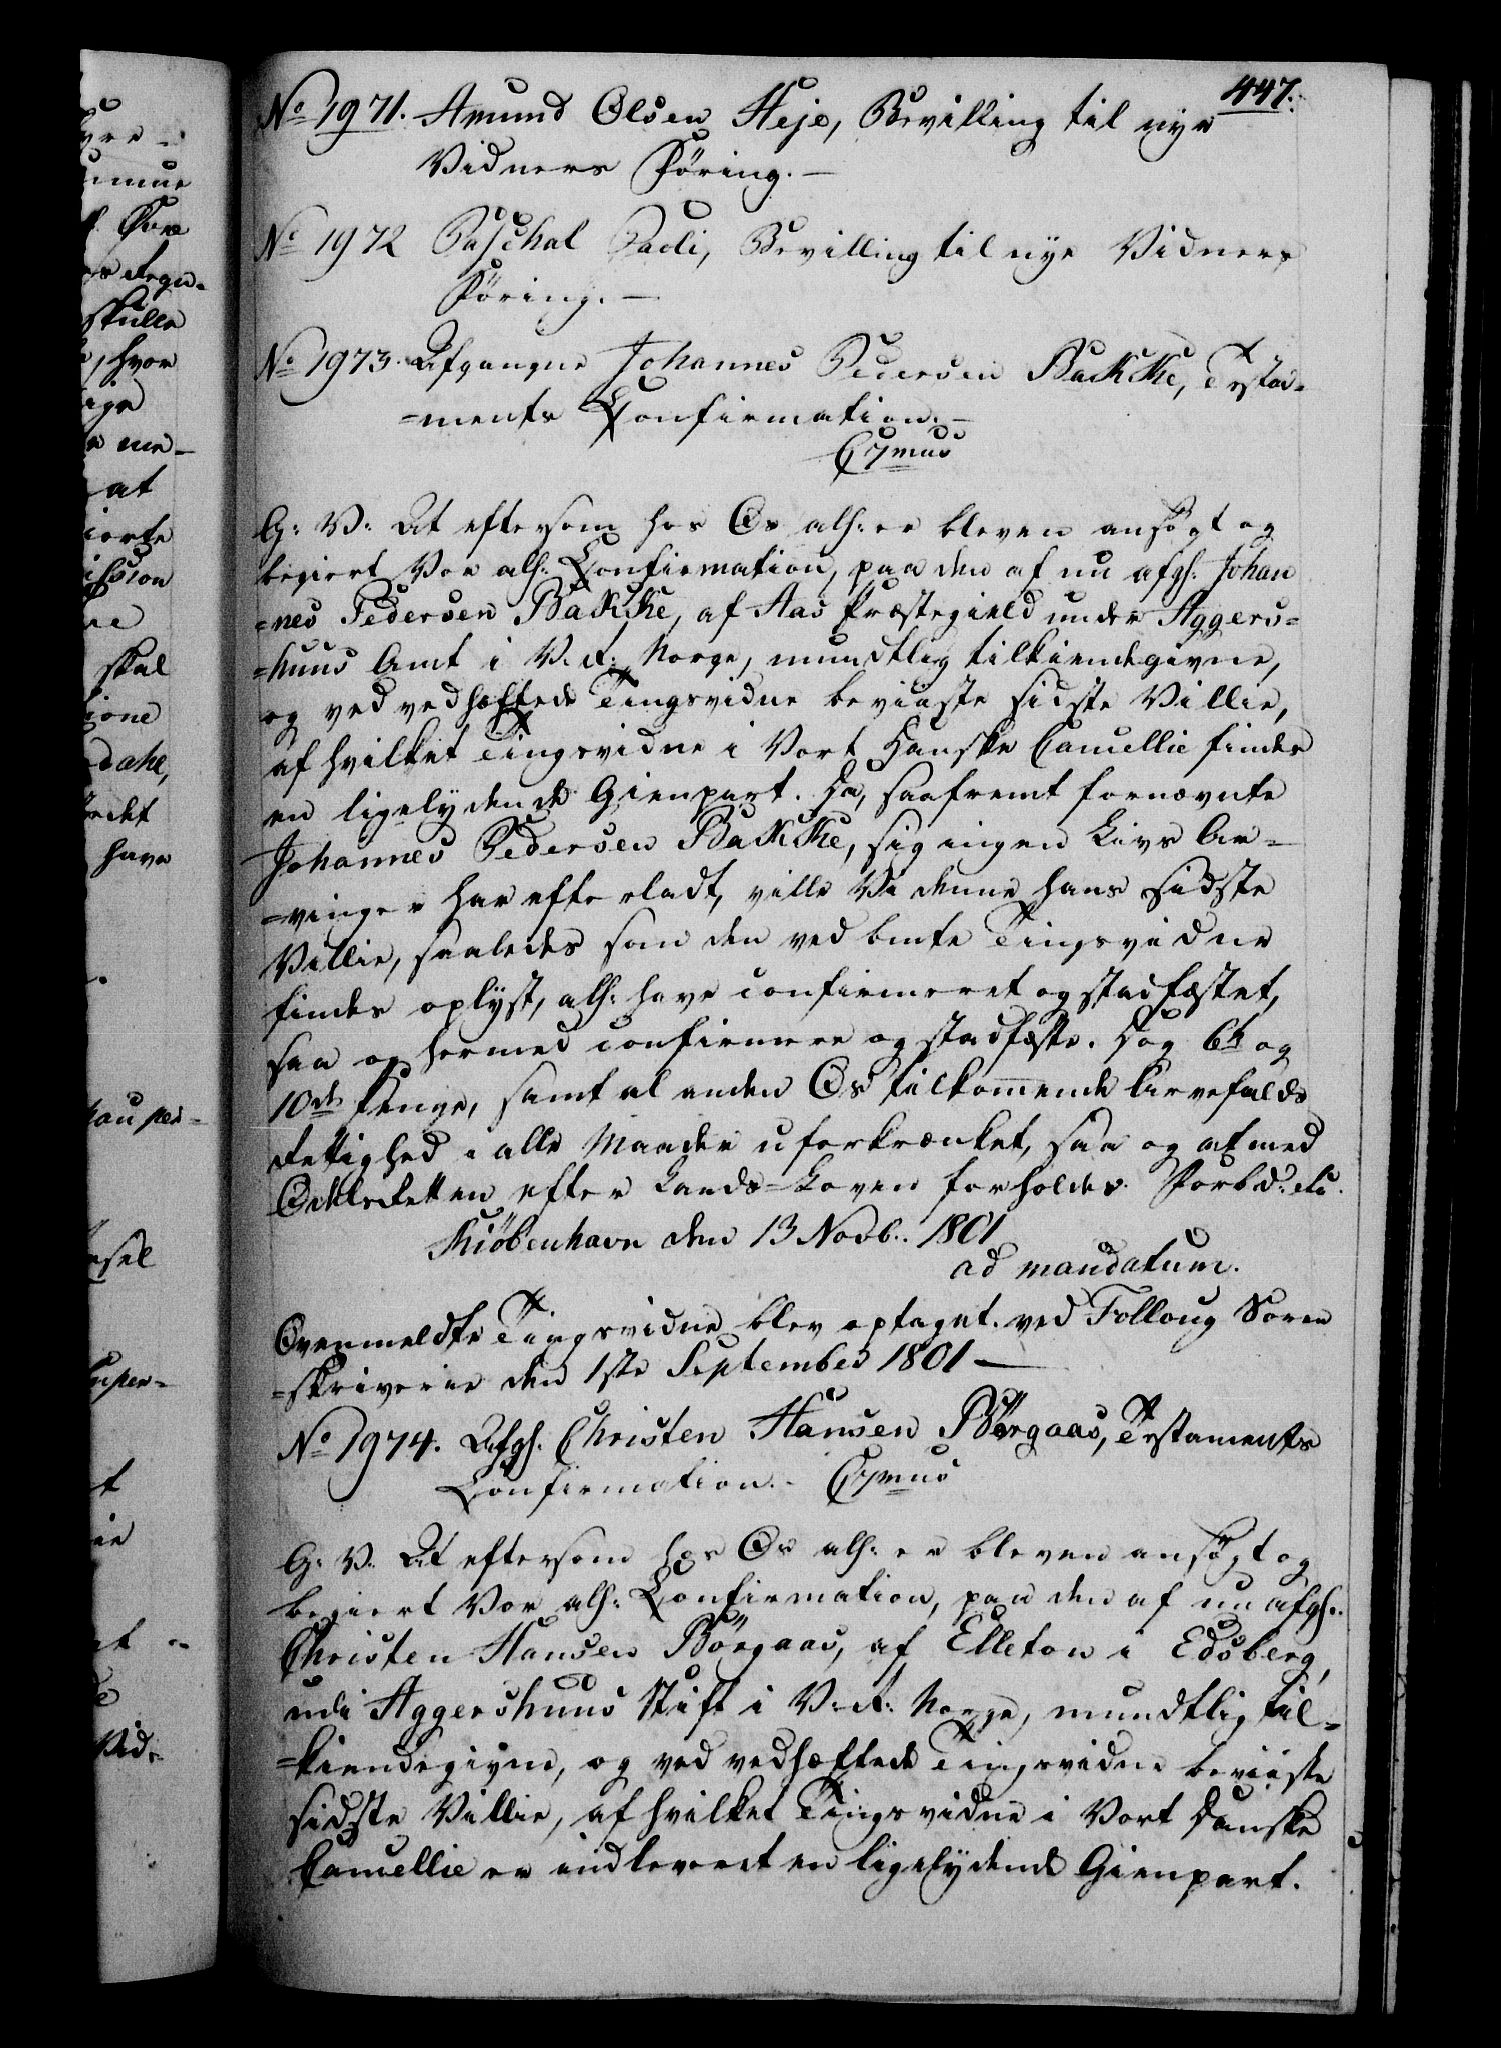 447.
No 1971. Amund Olsen Heje, Bevilling til nye
Vidners Föring. —
No 1972 Paschal Paoli, Bevilling til nye Vidners
Föring. —
No 1973. Afgangne Johannes Pedersen Bakke, Testa-
=ments Confirmation. —
C7mus
G: V: At eftersom hos Os alh: er bleven ansøgt og
begiert Vor alh: Confirmation, paa den af nu afgh: Johan
=nes Pedersen Bakke, af Aas Præstegield under Aggers=
=huus Amt i V. R: Norge, mundtlig tilkiendegivne,
og ved vedhæftede Tingsvidne beviiste sidste Villie,
af hvilket Tingsvidne i Vort Danske Cancellie findes
en ligelydende Gienpart. Da, saafremt fornævnte
Johannes Pedersen Bakke, sig ingen Livs Ar=
=vinger har efterladt, ville Vi denne hans sidste
Villie, saaledes som den ved bmte Tingsvidne
findes oplyst, alh: have confirmeret og stadfæstet,
saa og hermed confirmere og stadfæste. Dog 6te og
10de Penge, samt al anden Os tilkommende Arvefalds
Rettighed i alle Maader uforkrænket, saa og at med
Odelsretten efter Lands-Loven forholdes. Forbd: etc.
Kiöbenhavn den 13 Novb: 1801
ad mandatum.
Ovenmeldte Tingsvidne blev optaget ved Folloug Soren
=skriverie den 1ste September 1801 —
No 1974. Afgh. Christen Hansen Börgaas, Testaments
Confirmation. - C7mus
G: V. At eftersom hos Os alh: er bleven ansøgt og
begiert Vor alh: Confirmation, paa den af nu afgh:
Christen Hansen Börgaas, af Elleton i Edsberg,
udi Aggershuus Stift i V: R: Norge, mundtlig til=
=kiendegivne, og ved vedhæftede Tingsvidne beviiste
sidste Villie, af hvilket Tingsvidne i Vort Danske
Cancellie er indleveret en ligelydende Gienpart.